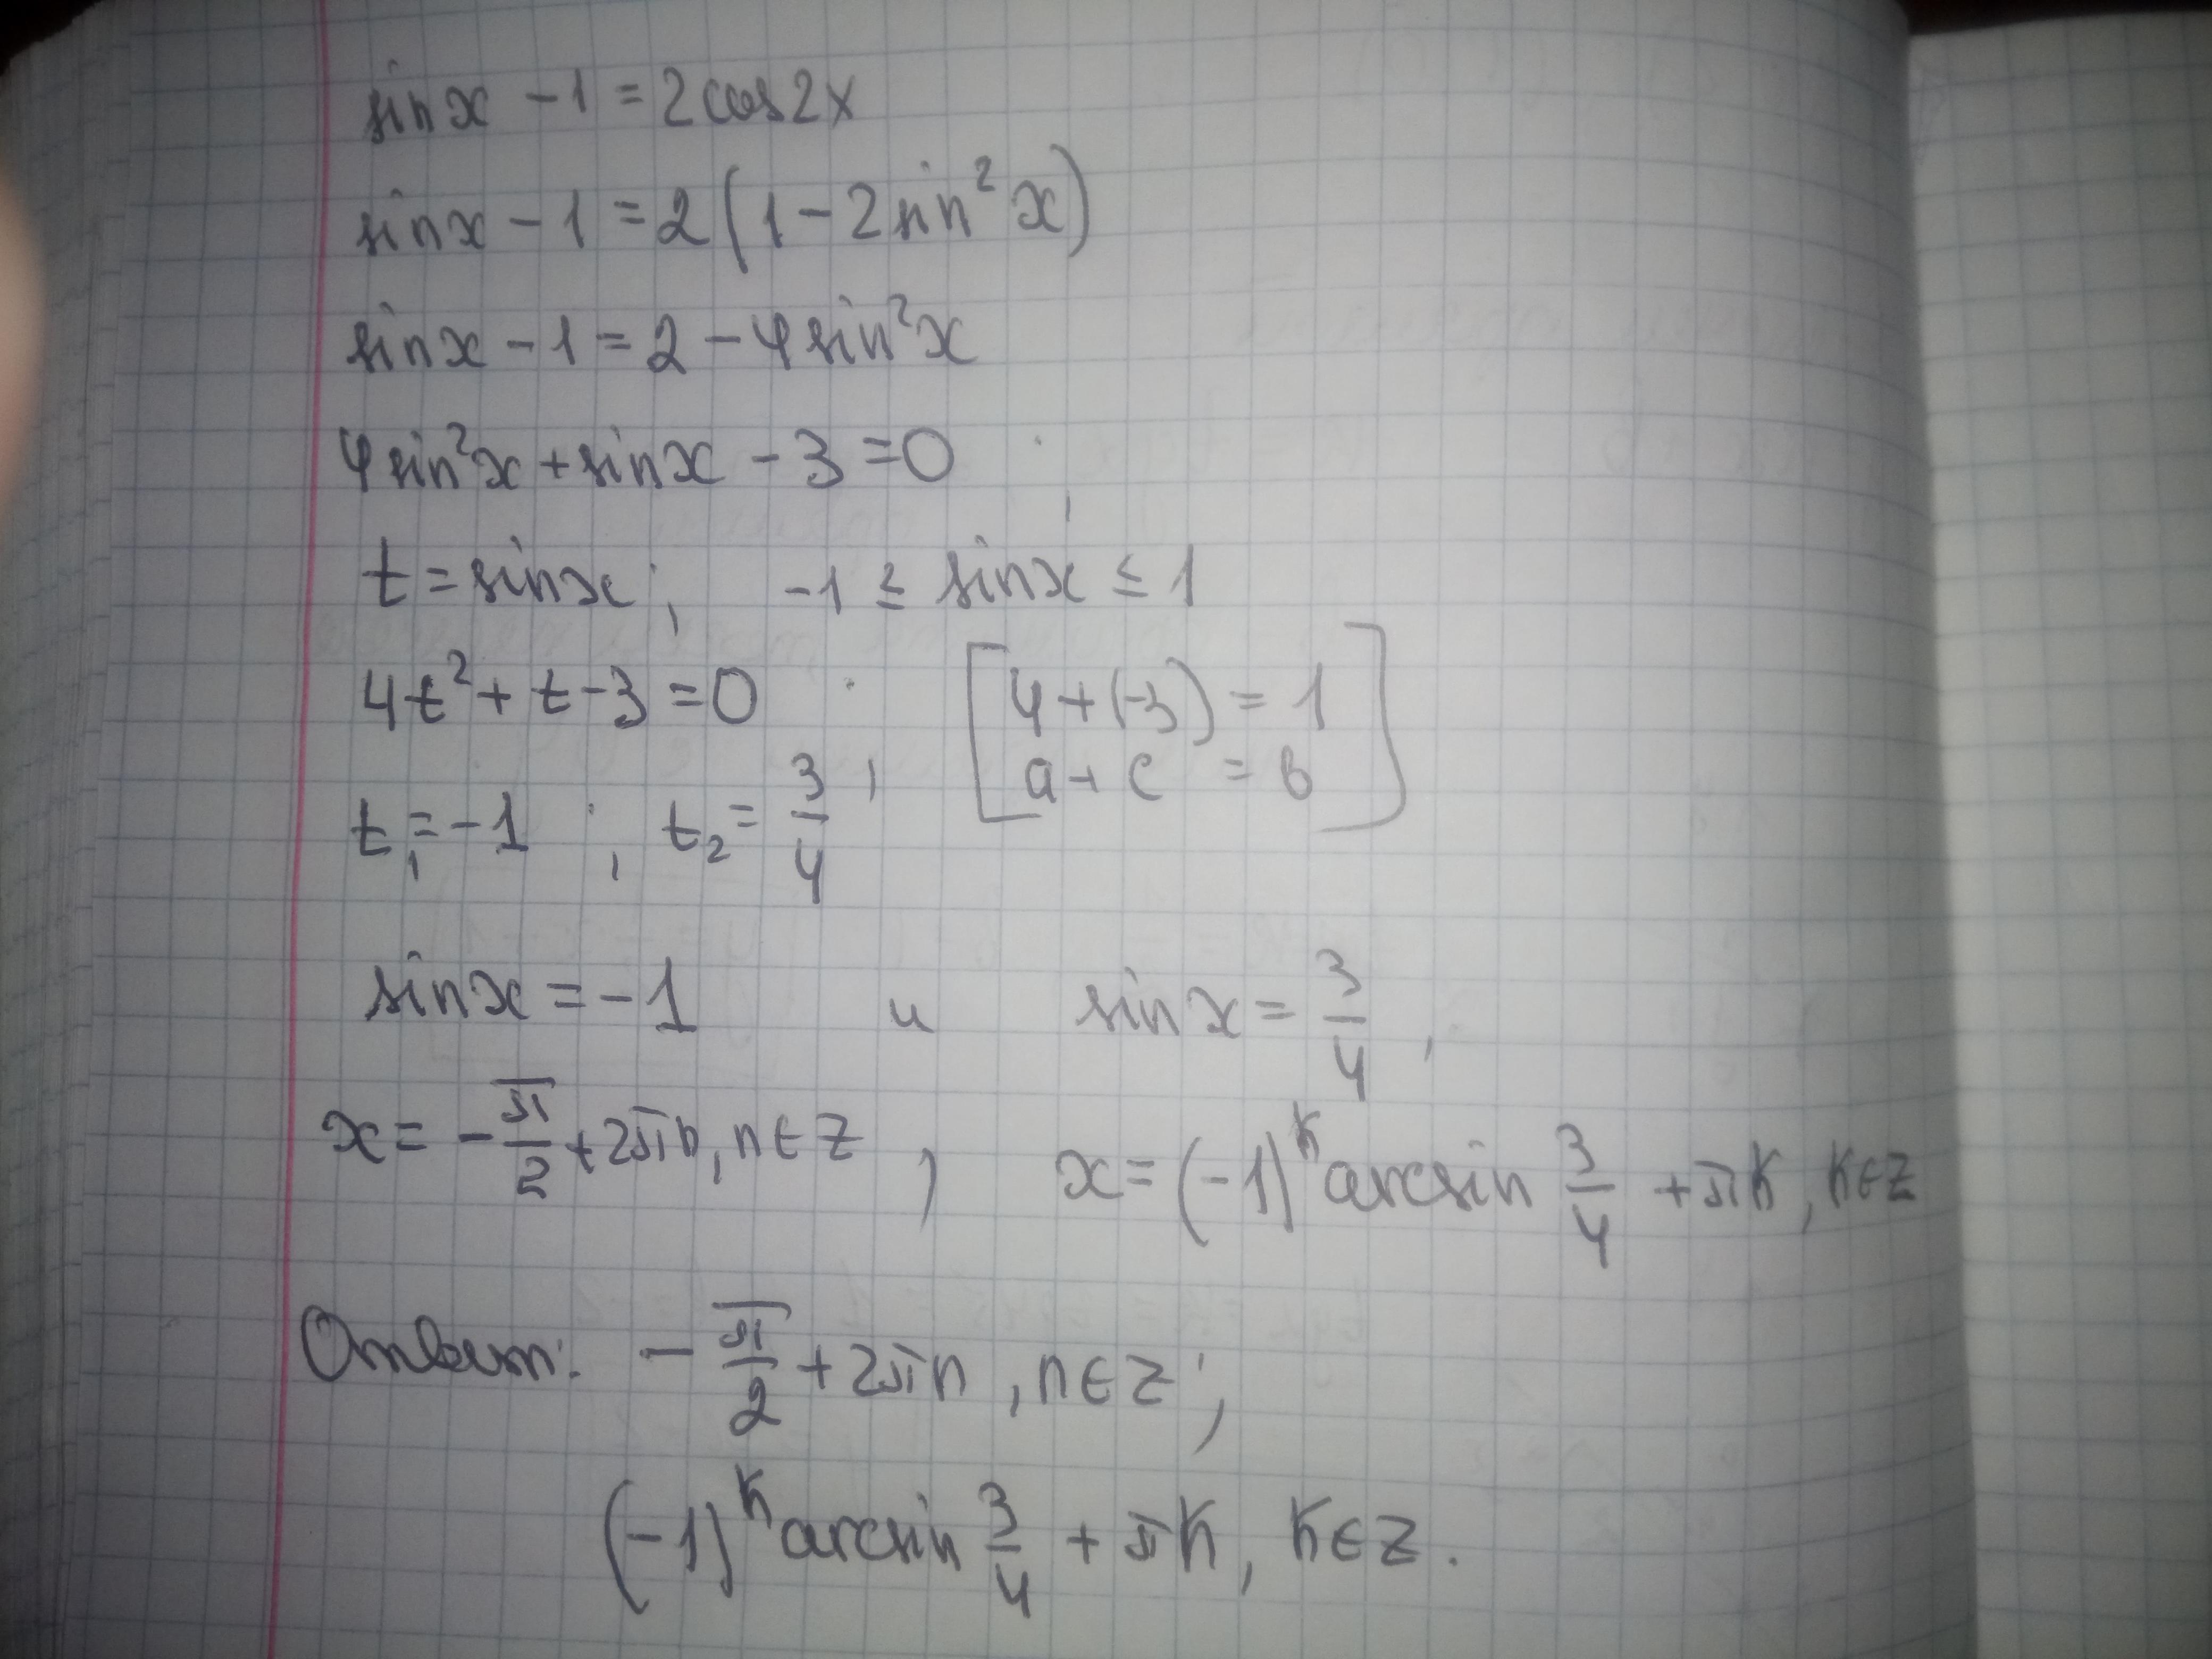 sinx - 1 = 2cos2x
sinx - 1 = 2(1 - 2sin²x)
sinx - 1 = 2 - 4sin²x
4sin²x + sinx - 3 = 0 ;
t = sinx ; -1 ≤ sinx ≤ 1
4t² + t - 3 = 0 ; [4 + (-3) = 1
a + c = b]
t₁ = -1 ; t₂ = 3/4
sinx = -1 и sinx = 3/4 ,
x = -π/2 + 2πn, n∈Z , x = (-1)ᵏ arcsin 3/4 + πk, k∈Z
Ответ: -π/2 + 2πn , n∈Z ;
(-1)ᵏ arcsin 3/4 + πk, k∈Z.